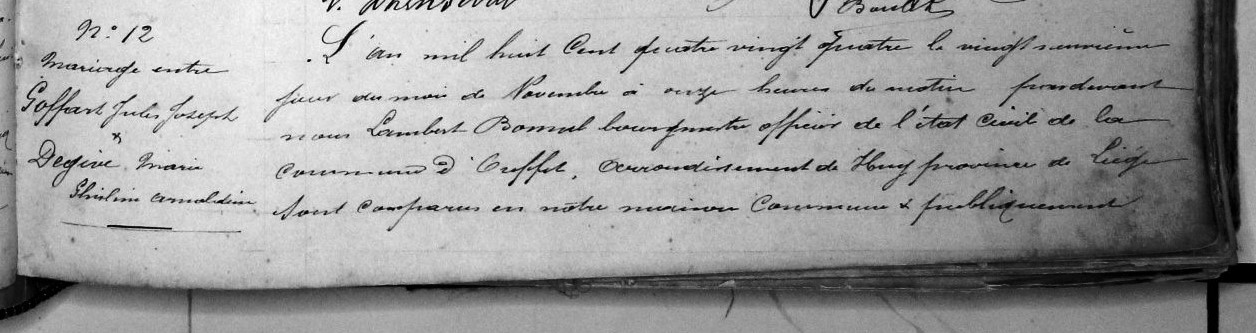 Boulet
N.o 12
Mariage entre
Goffart Jules Joseph
x
Degive Marie
Ghisline Arnoldine
L'an mil huit Cent quatre vingt quatre le vingt neuvième
jour du mois de Novembre à onze heures du matin pardevant
nous Lambert bourgmestre officier de l'état Civil de la
commune d' Ereffet, Arrondissement de Huy province de Liège
sont comparus en notre maison Commune & publiquement